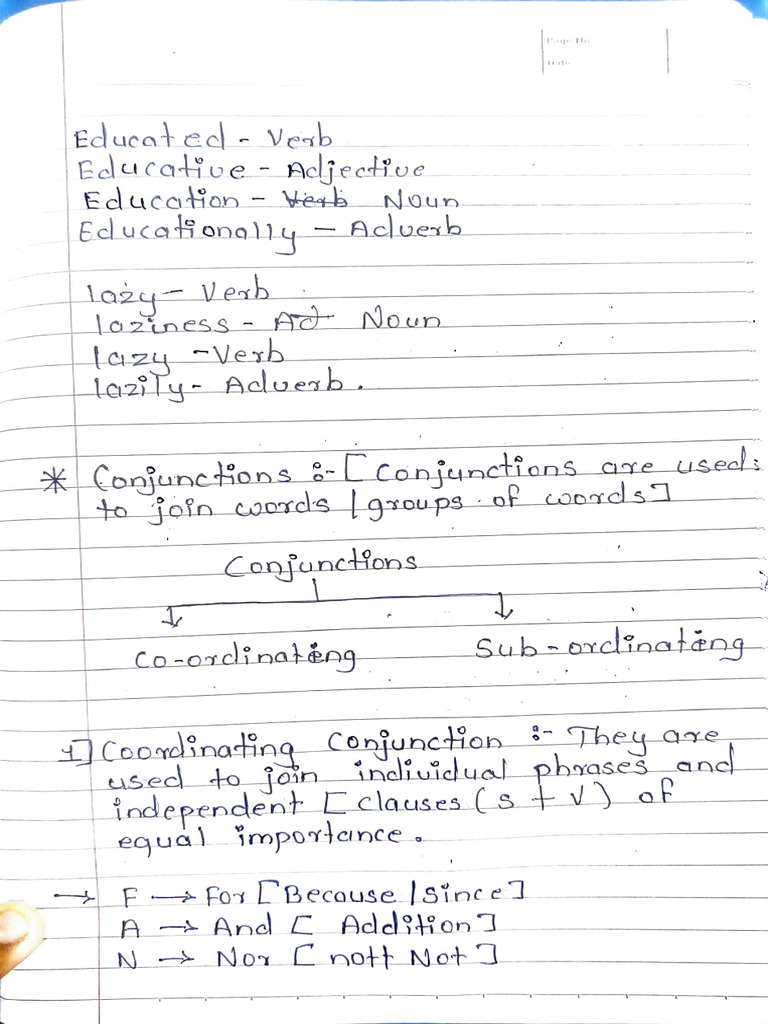 Page No
Date
Educated - Verb
Educative - Adjective
Education - Verb Noun
Educationally - Adverb
lazy - Verb
laziness - Ad Noun
lazy - Verb
lazily - Adverb.
* Conjunctions :- [Conjunctions are used:
to join words / groups of words]
Conjunctions
Co-ordinating Sub-ordinating
1] Coordinating Conjunction :- They are
used to join individual phrases and
independent [clauses (S + V) of
equal importance.
→ F → For [Because / Since]
A → And [Addition]
N → Nor [not+Not]